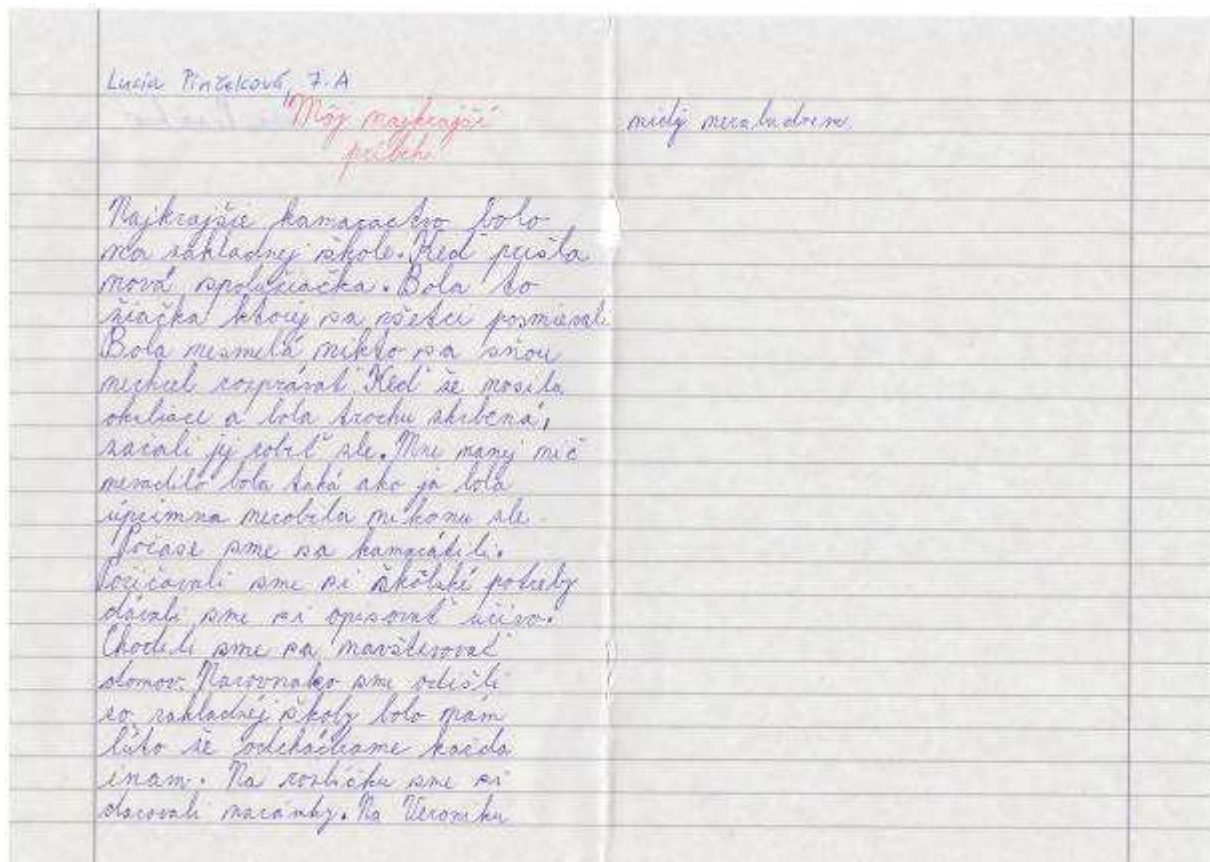 Lucia Pinčeková, 7.A
"Môj najkrajší
príbeh"
Najkrajšie kamaractvo bolo
na zakladnej škole. Keď prišla
nová spolužiačka. Bola to
žiačka ktorej sa všetci posmievali
Bola nesmelá nikto sa sňou
nechcel rozprávať Keď že nosila
okuliare a bola trochu
začali jej robiť zle. Mne nanej nič
nevadilo bola taká ako ja bola
úprimna nerobila nikomu zle.
Počase sme sa kamarátili.
Požičavali sme si školské potreby
dávali sme si opisovať učivo.
Chodili sme sa navštevovať
domov. Narovnako sme odišli
zo zakladnéj školy bolo nám
lúto že odchádzame každa
inam. Na rozlúčku sme si
darovali naránky. Na Veroniku
nidy nezabudnem.